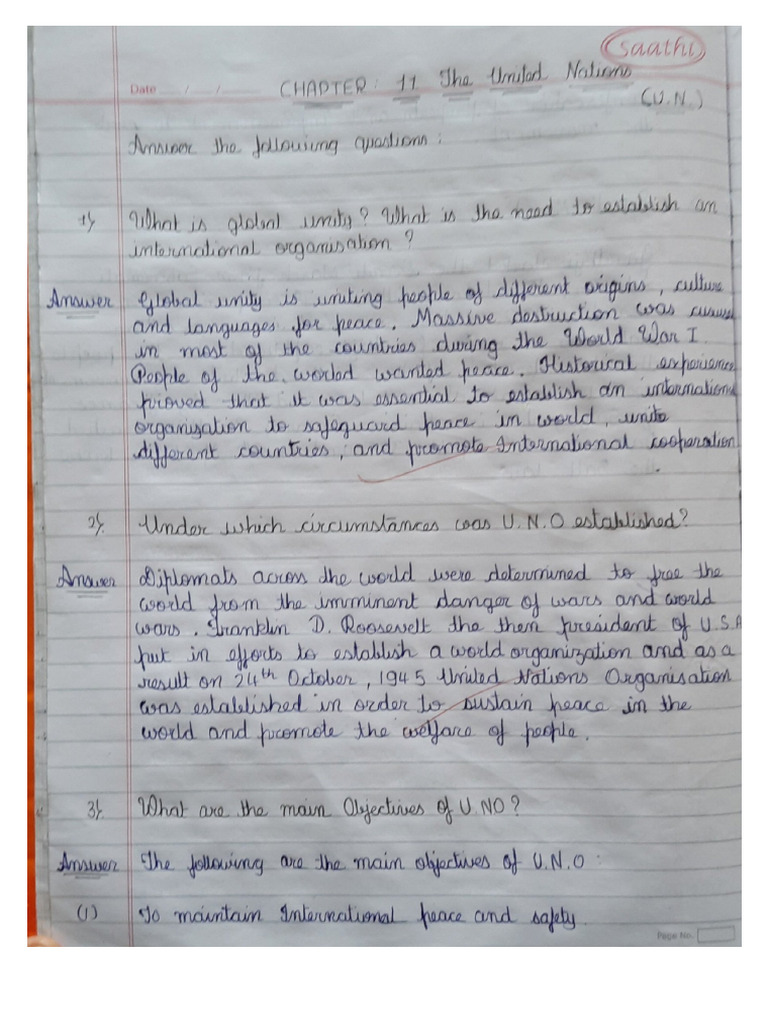 saathi
Date / / CHAPTER: 11 The United Nations
(U.N.)
Answer the following questions:
1) What is global unity? What is the need to establish an
international organisation?
Answer Global unity is uniting people of different origins, culture
and languages for peace. Massive destruction was
in most of the countries during the World War I.
People of the worled wanted peace. Historical experience
proved that it was essential to establish an international
organization to safeguard peace in world, unite
different countries, and promote International cooperation.
2) Under which circumstances was U.N.O established?
Answer Diplomats across the world were determined to free the
world from the imminent danger of wars and world
wars. Franklin D. Roosevelt the then president of U.S.A
put in efforts to establish a world organization and as a
result on 24th October, 1945 United Nations Organisation
was established in order to sustain peace in the
world and promote the welfare of people.
3) What are the main Objectives of U.NO?
Answer The following are the main objectives of U.N.O:
(1) To maintain International peace and safety.
Page No.